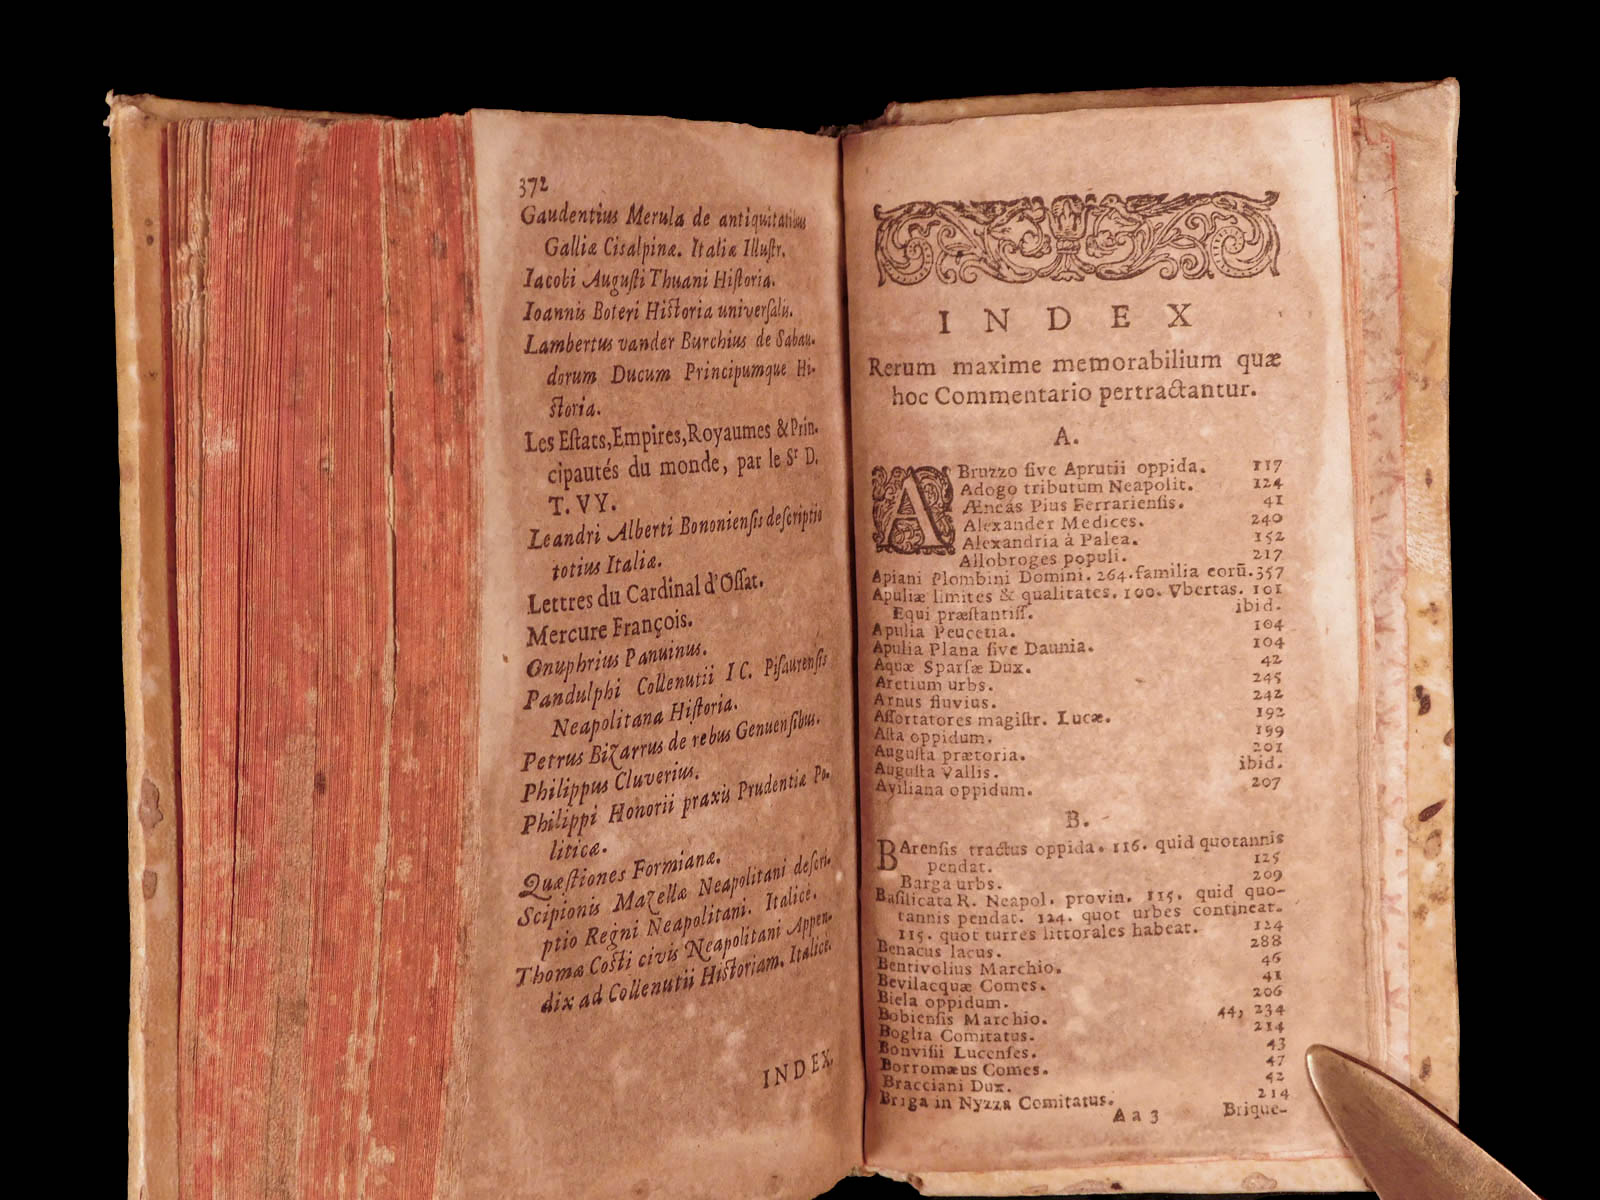 372
Gaudentius Merula de antiquitatibus
Galliæ Cisalpinæ. Italiæ Illuſtr.
Iacobi Auguſti Thuani Hiſtoria.
Ioannis Boteri Hiſtoria univerſalis.
Lambertus vander Burchius de Sabau-
dorum Ducum Principumque Hi-
ſtoria.
Les Eſtats, Empires, Royaumes & Prin-
cipautés du monde, par le Sr D.
T. V Y.
Leandri Alberti Bononienſis deſcriptio
totius Italiæ.
Lettres du Cardinal d'Oſſat.
Mercure François.
Onuphrius Panuinus.
Pandulphi Collenutii I C. Piſaurenſis
Neapolitana Hiſtoria.
Petrus Bizarrus de rebus Genuenſibus.
Philippus Cluverius.
Philippi Honorii praxis Prudentiæ Po-
liticæ.
Quæſtiones Formianæ.
Scipionis Mazellæ Neapolitani deſcri-
ptio Regni Neapolitani. Italicè.
Thomæ Coſti civis Neapolitani Appen-
dix ad Collenutii Hiſtoriam. Italicè.
INDEX.
INDEX
Rerum maxime memorabilium quæ
hoc Commentario pertractantur.
A.
ABruzzo ſive Aprutii oppida. 117
Adogo tributum Neapolit. 124
Æneas Pius Ferrarienſis. 41
Alexander Medices. 240
Alexandria à Palea. 152
Allobroges populi. 217
Apiani Plombini Domini. 264. familia eorū. 357
Apuliæ limites & qualitates. 100. Vbertas. 101
Equi præſtantiſſ. ibid.
Apulia Peucetia. 104
Apulia Plana ſive Daunia. 104
Aquæ Sparſæ Dux. 42
Aretium urbs. 245
Arnus fluvius. 242
Aſſortatores magiſtr. Lucæ. 192
Aſta oppidum. 199
Auguſta prætoria. 201
Auguſta Vallis. ibid.
Aviliana oppidum. 207
B.
BArenſis tractus oppida. 116. quid quotannis
pendat. 125
Barga urbs. 209
Baſilicata R. Neapol. provin. 115. quid quo-
tannis pendat. 124. quot urbes contineat.
115. quot turres littorales habeat. 124
Benacus lacus. 288
Bentivolius Marchio. 46
Bevilacquæ Comes. 41
Biela oppidum. 206
Bobienſis Marchio. 44, 234
Boglia Comitatus. 214
Bonviſii Lucenſes. 43
Borromæus Comes. 47
Bracciani Dux. 42
Briga in Nyzza Comitatus. 214
A a 3 Brique-